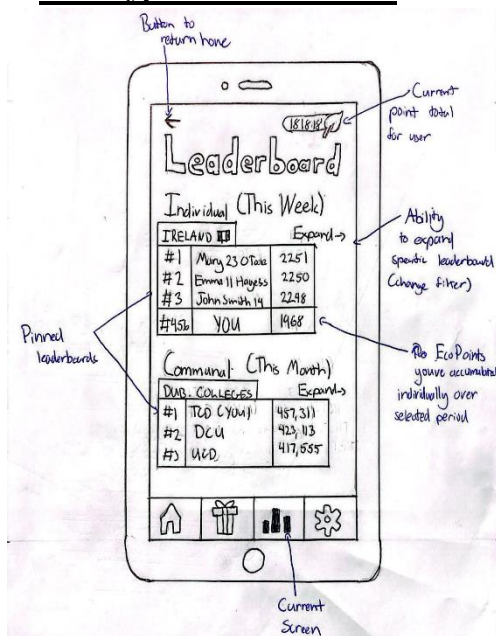 Button to
return home
Current
point total
for user
181818
Leaderboard
Individual (This Week)
IRELAND
Expand→
#1 Mary 23 OToole 2251
#2 Emma 11 Hayess 2250
#3 John Smith 14 2248
#456 YOU 1968
Ability
to expand
specific leaderboard
(change filter)
Pinned
leaderboards
No EcoPoints
youve accumulated
individually over
selected period
Communal (This Month)
DUB. COLLEGES
Expand→
#1 TCD (YOU) 457,311
#2 DCU 423,113
#3 UCD 417,555
Current
Screen